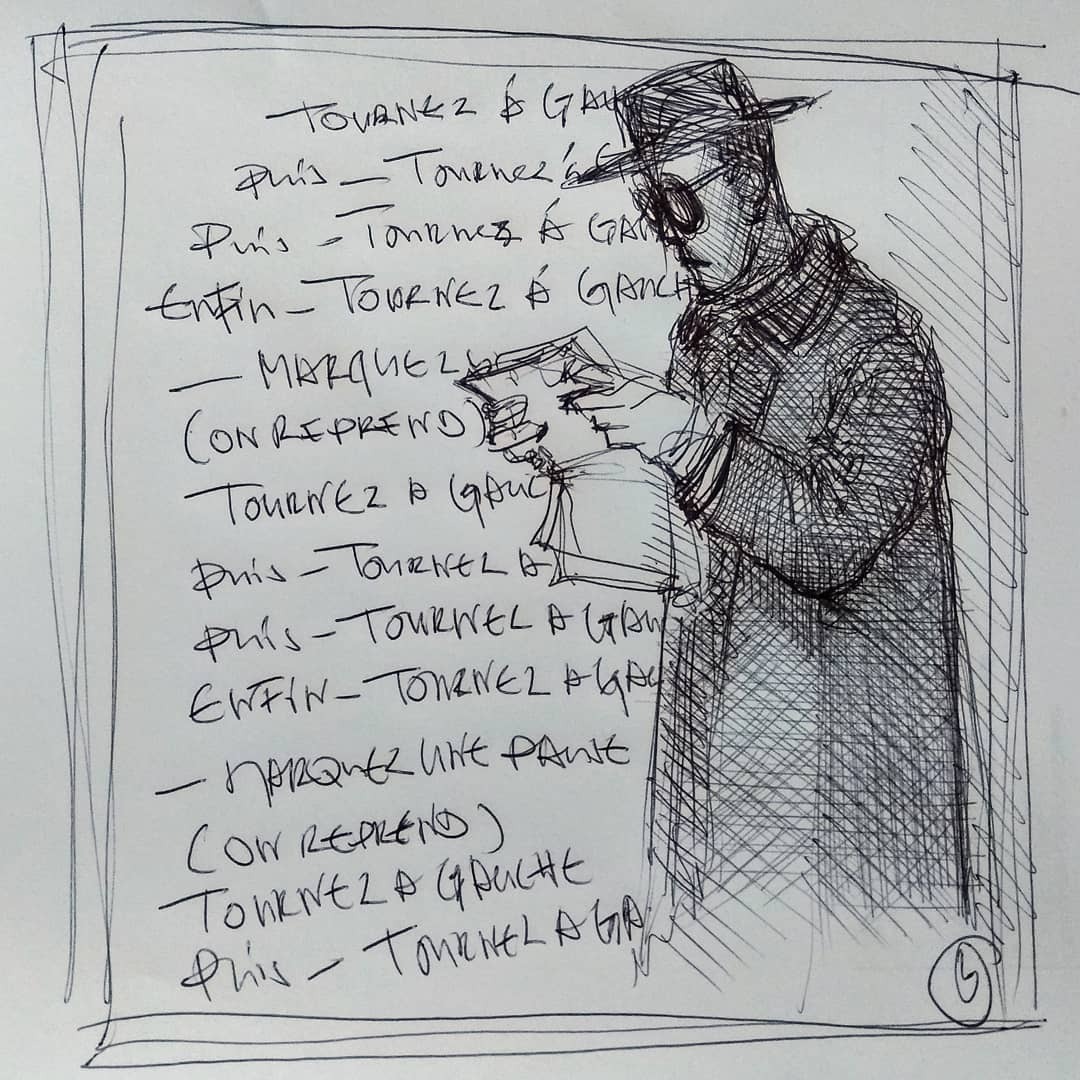 TOURNEZ À GAU
Puis — Tournez à G
Puis - Tournez À GAU
Enfin — TOURNEZ À GAUCH
— MARQUEZ
(ON REPREND)
TOURNEZ A GAUC
Puis — TOURNEZ A
Puis — TOURNEZ A GAU
ENFIN — TOURNEZ A GAU
— MARQUEZ UNE PAUSE
(ON REPREND)
TOURNEZ A GAUCHE
Puis — TOURNEZ A GA